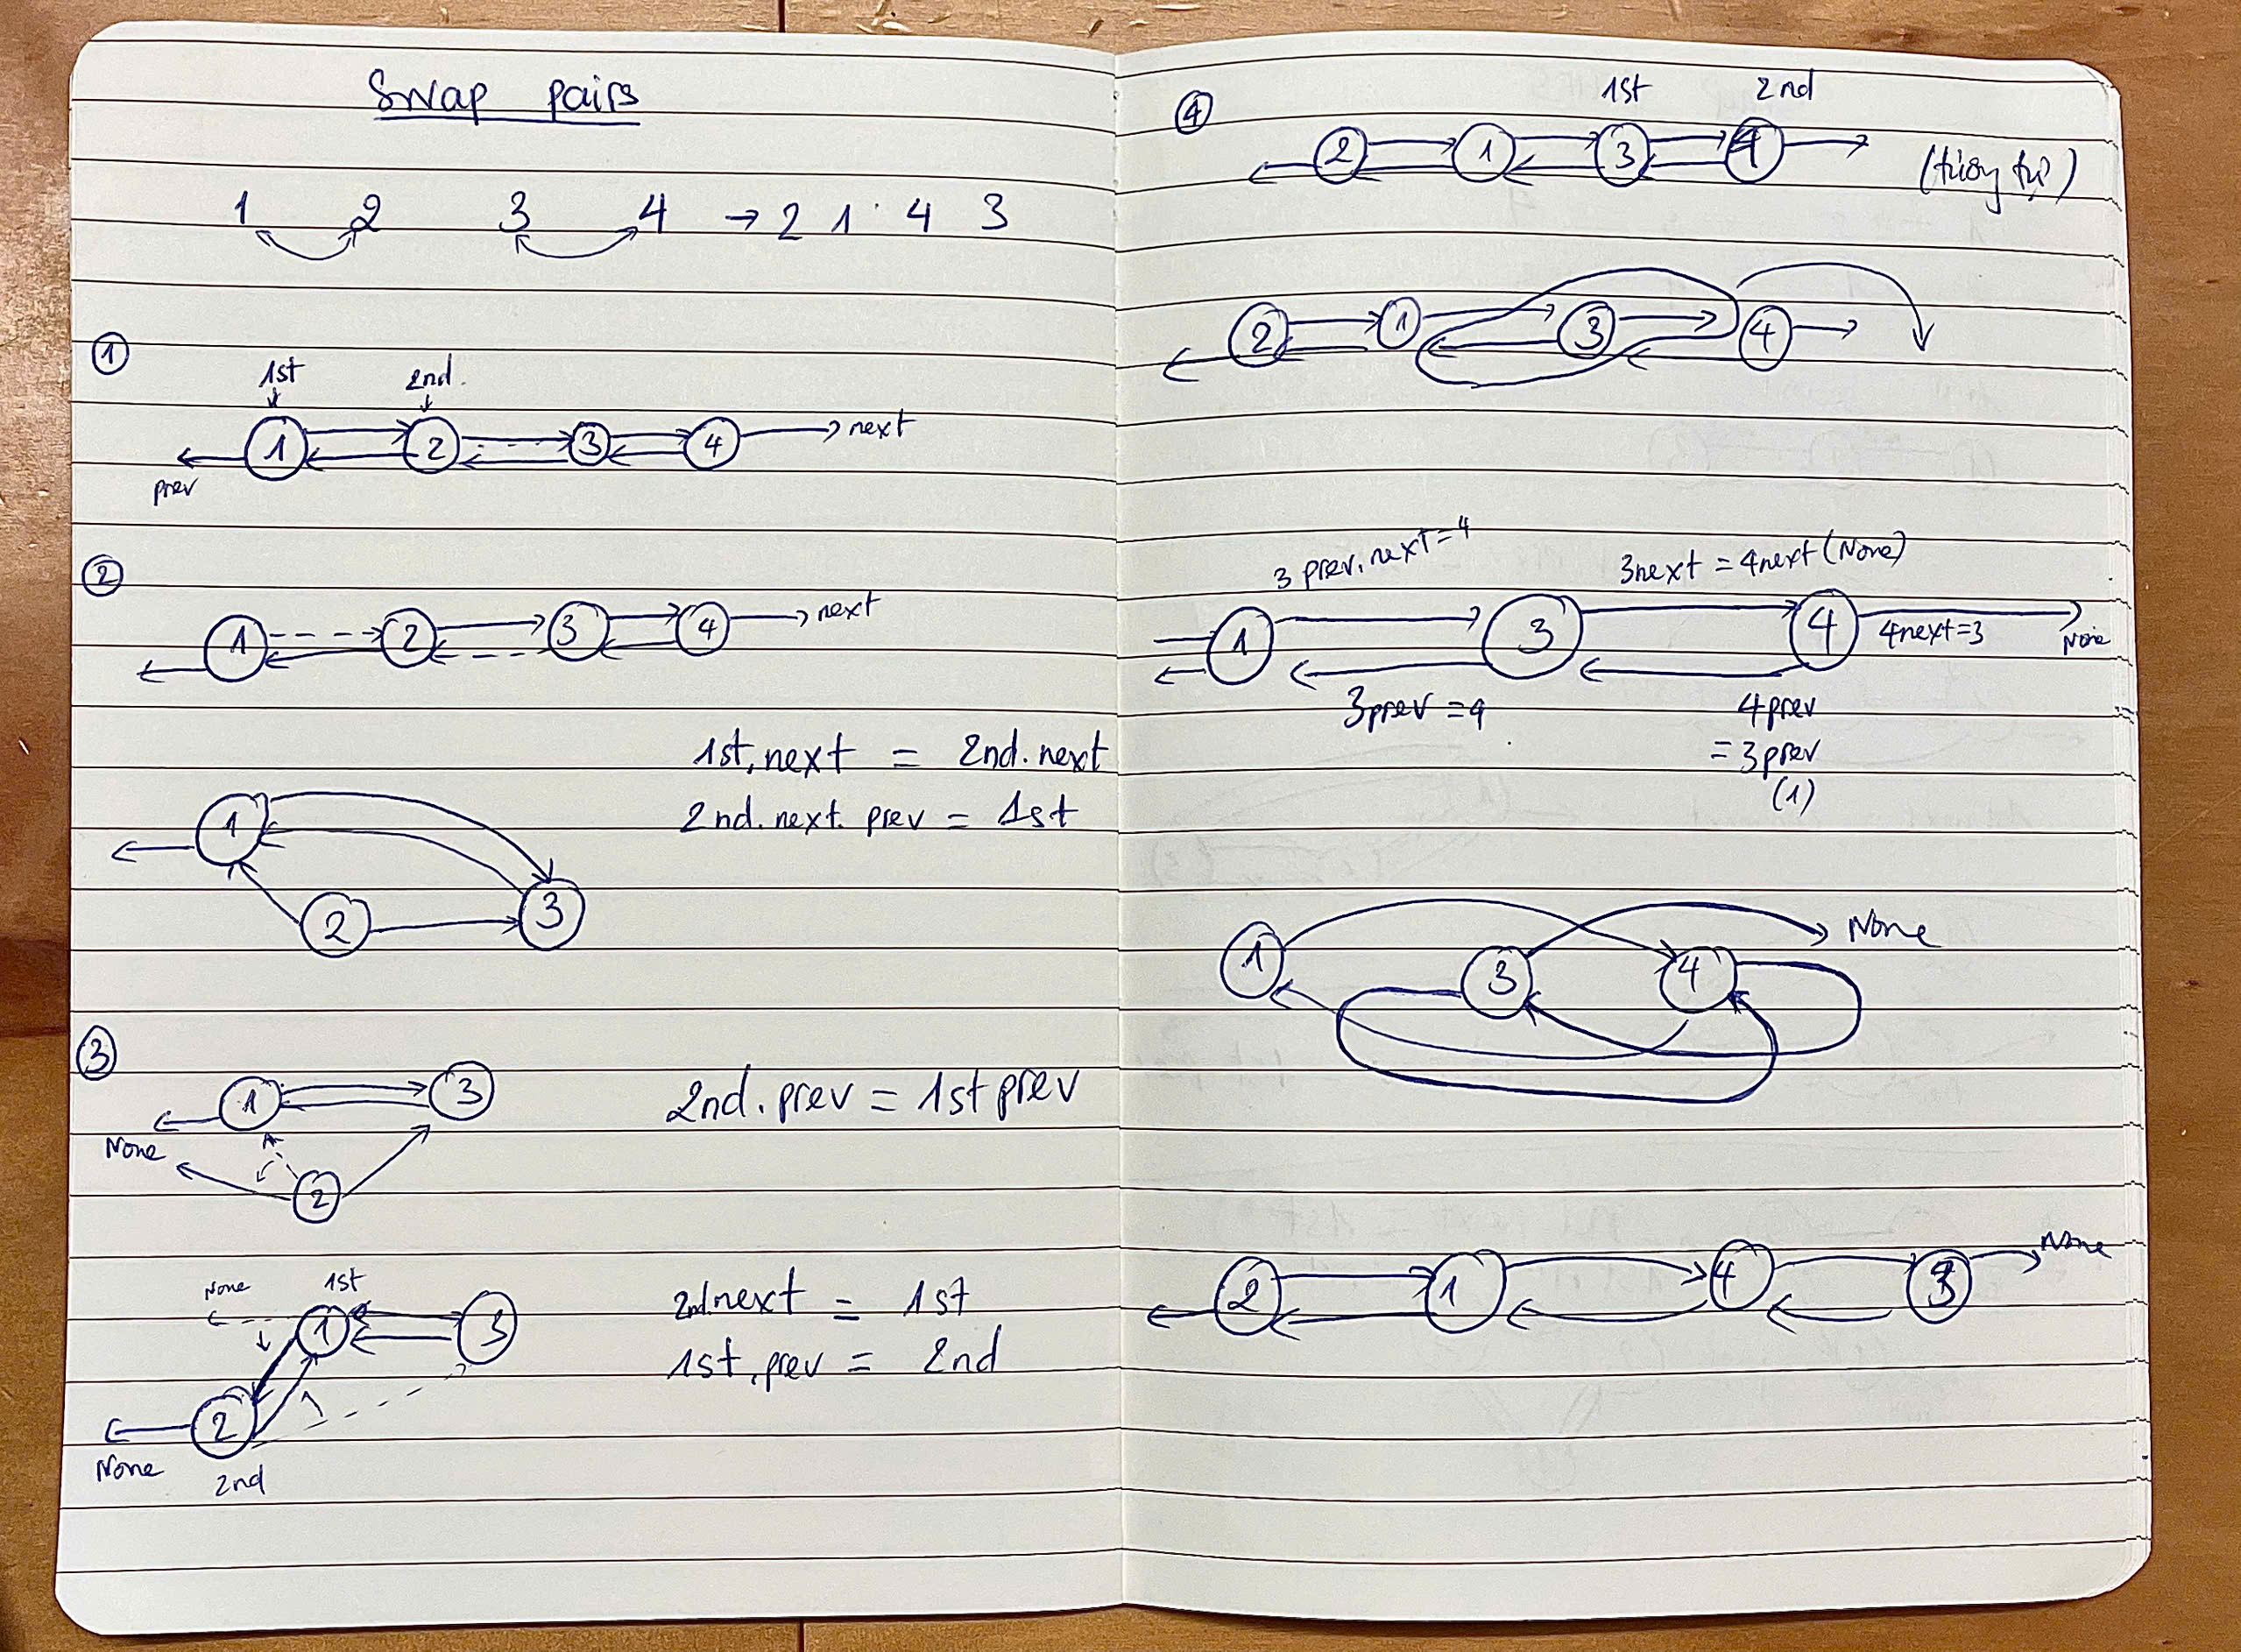 Swap pairs
1 2 3 4 → 2 1 4 3
①
1st 2nd.
1 2 3 4 next
prev
②
1 2 3 4 next
1st.next = 2nd.next
2nd.next.prev = 1st
1
2 3
③
1 3
2nd.prev = 1st prev
None
2
None 1st
1 3
2nd.next = 1st
1st.prev = 2nd
2
None
2nd
④
1st 2nd
2 1 3 4
2 1 3 4
3 prev.next = 4
3next = 4next (None)
1 3 4
4next=3
None
3prev = 4
4prev
= 3prev
(1)
None
1 3 4
None
2 1 4 3